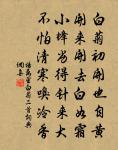 白菊初開也自黄
開來開去白如霜
小蜂啗得針來大
不怕清寒嗅冷香
楊萬里白菊首詞典
網集